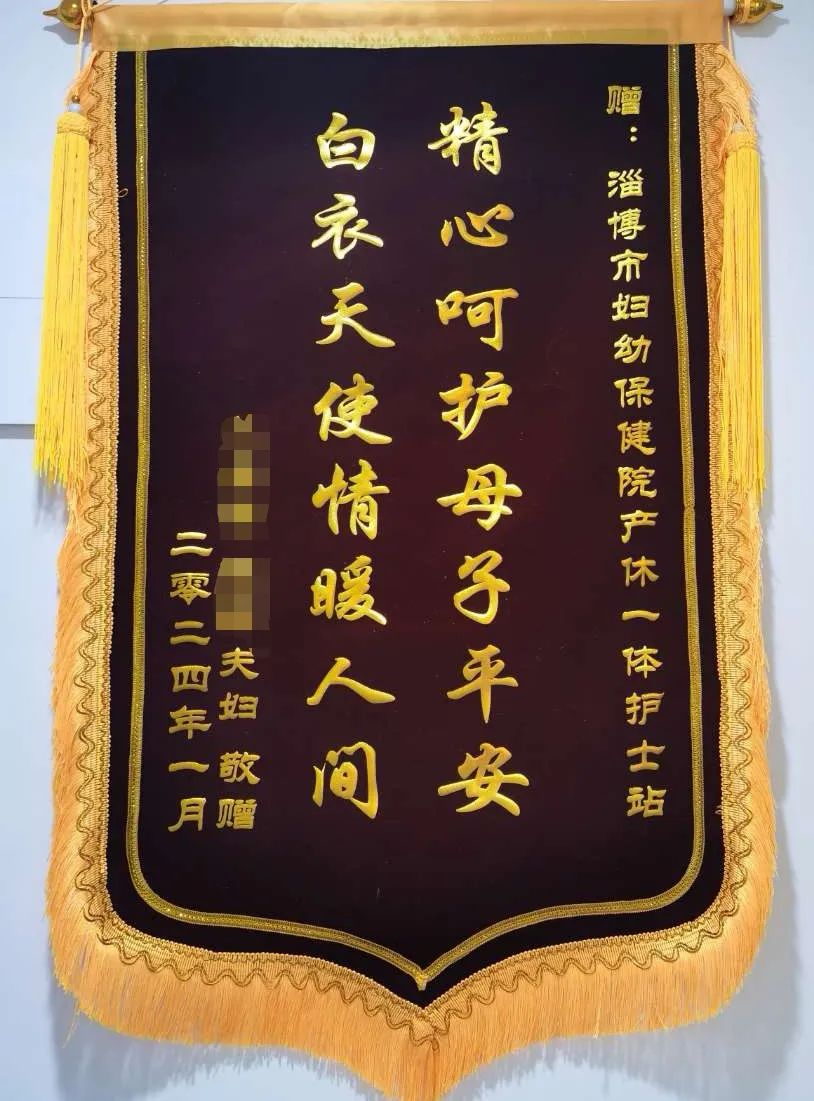 赠：淄博市妇幼保健院产休一体护士站
精心呵护母子平安
白衣天使情暖人间
夫妇 敬赠
二零二四年一月